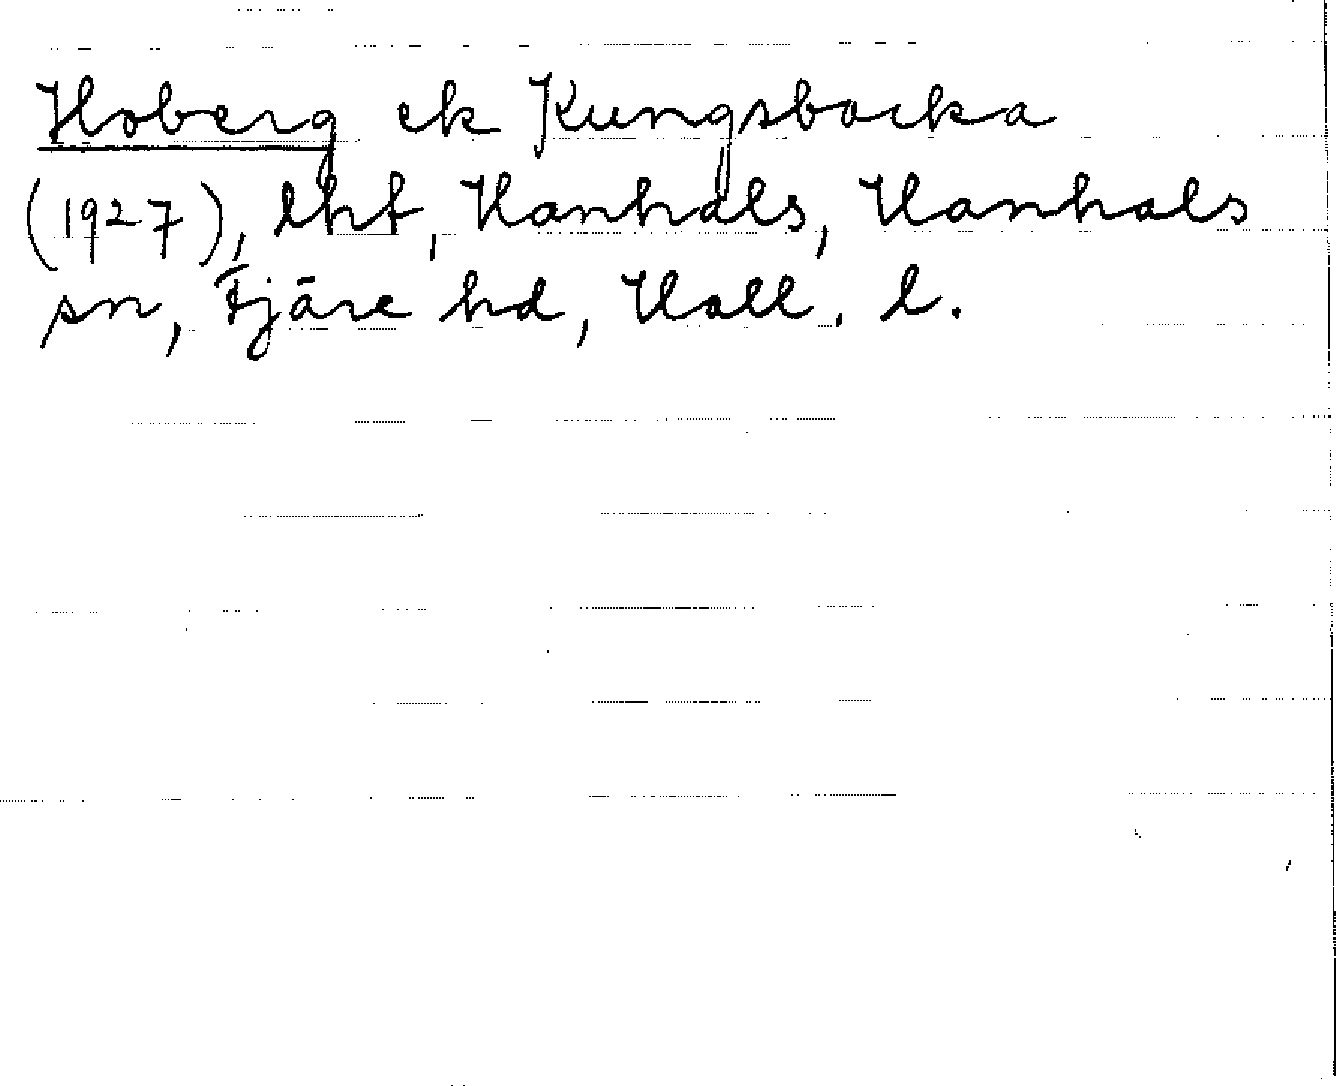 Hoberg ek Kungsbacka
(1927), lht, Hanhals, Hanhals
sn, Fjäre hd, Hall. l.